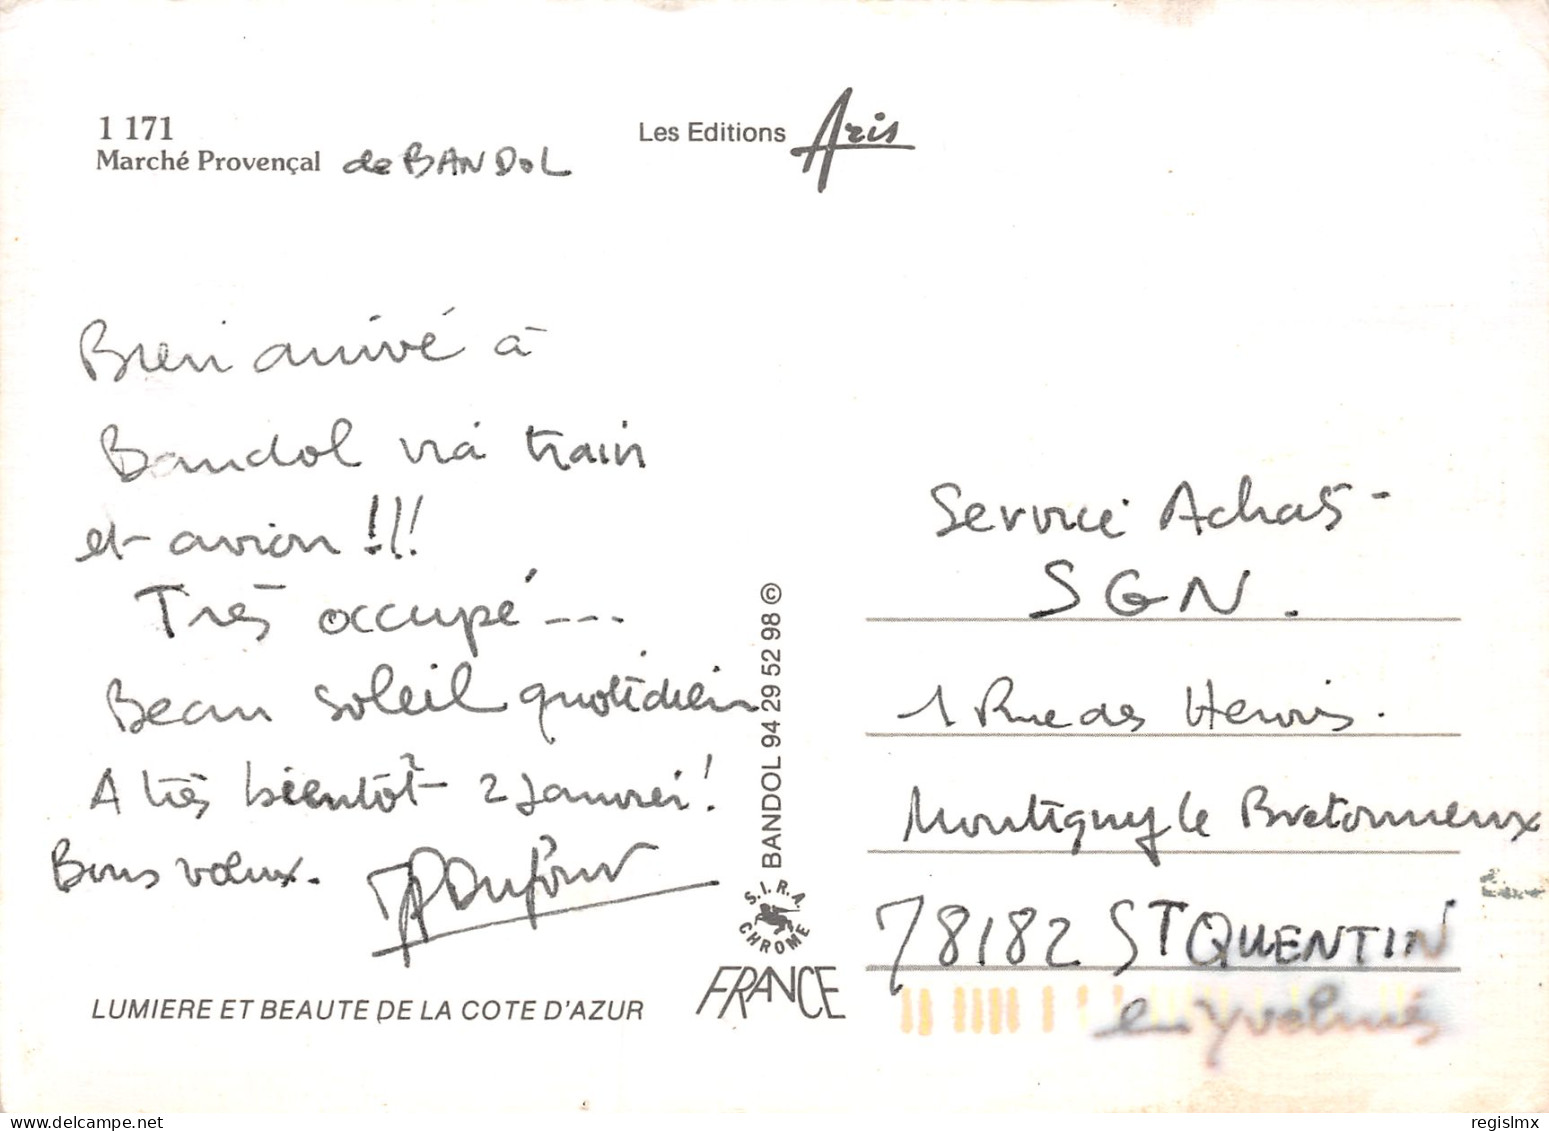 1 171
Marché Provençal de BANDOL
Les Editions Aris
Bien arrivé à
Bandol via train
et avion !!!
Très occupé ---
Beau soleil quotidien
A très bientôt 2 Janvier !
Bons voeux.
JP Dufour
LUMIERE ET BEAUTE DE LA COTE D'AZUR
BANDOL 94 29 52 98 ©
S.I.R.A.
CHROME
FRANCE
Service Achats -
SGN.
1 Rue des Hérons.
Montigny le Bretonneux
78182 ST QUENTIN
en Yvelines
delcampe.net
regislmx